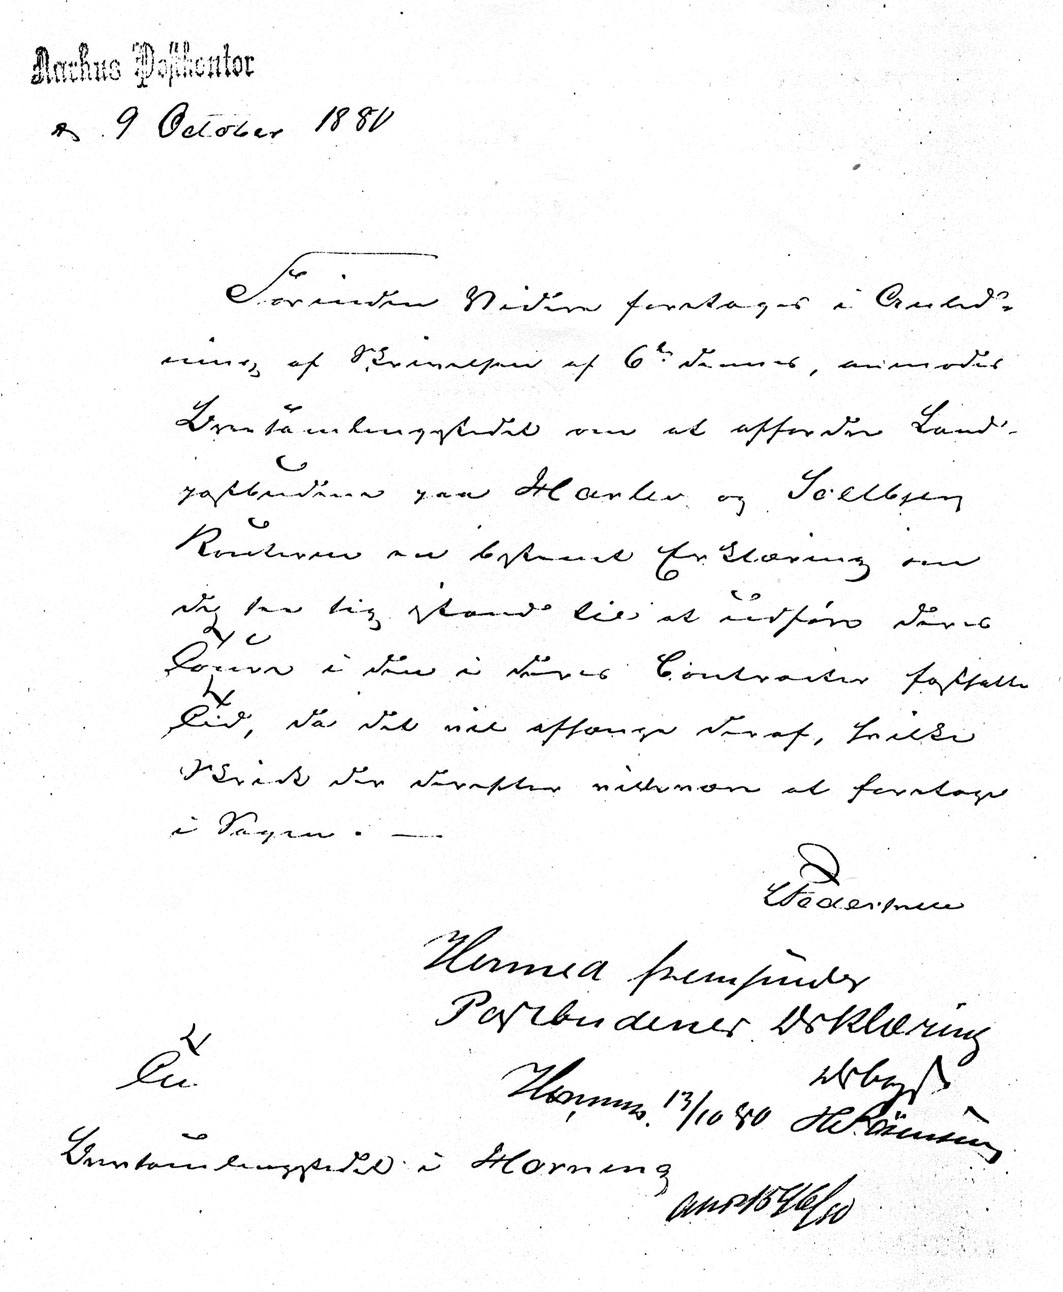 Aarhus Postkontor
9 October 1880
Forinden Videre foretages i Anled-
ning af Skrivelsen af 6te dennes, anmodes
Brevsamlingsstedet om at affordre Land-
postbudene paa Harlev og Solbjerg
Routerne en bestemt Erklæring om
de see sig istand til at udføre deres
Toure i den i deres Contracter fastsatte
Tid, da det vil afhænge deraf, hvilke
Skridt der derefter ville være at foretage
i Sagen. —
Pedersen
Hermed fremsender
Postbudenes Erklæring
Ærbgst
Hørning 13/10 80
Til
Brevsamlingsstedet i Hørning